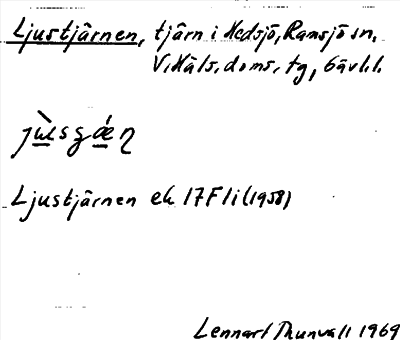 Ljustjärnen, tjärn i Hedsjö, Ramsjö sn,
V. Häls. doms. tg, Gävl. l.
Ljustjärnen ek 17F 1i (1958)
Lennart Thunvall 1969